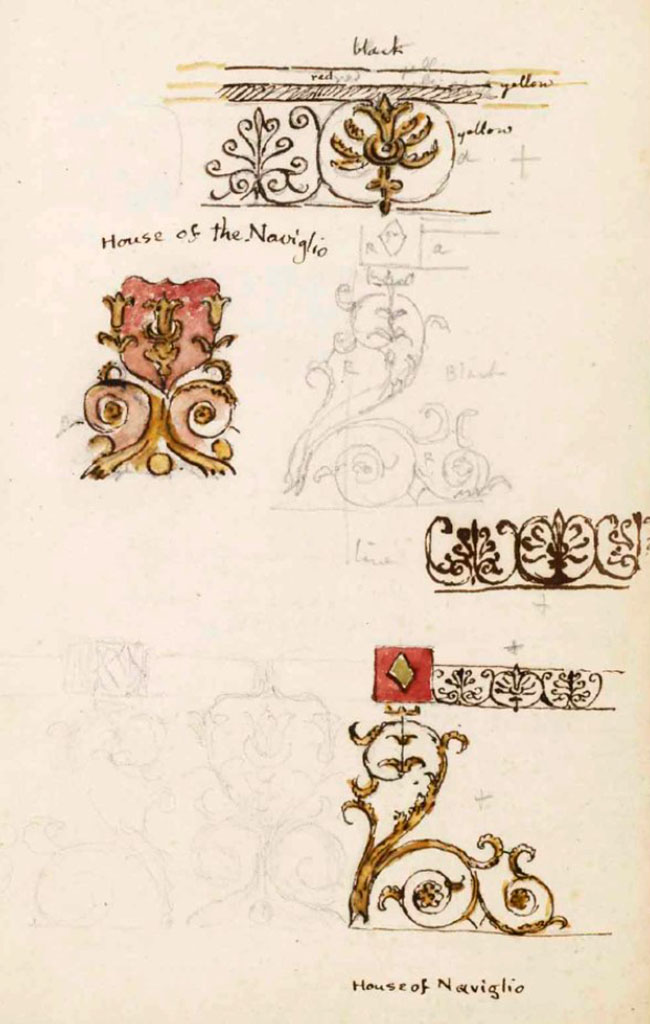 black
red
yellow
yellow
d
House of the Naviglio
R
a
R
Black
line
House of Naviglio